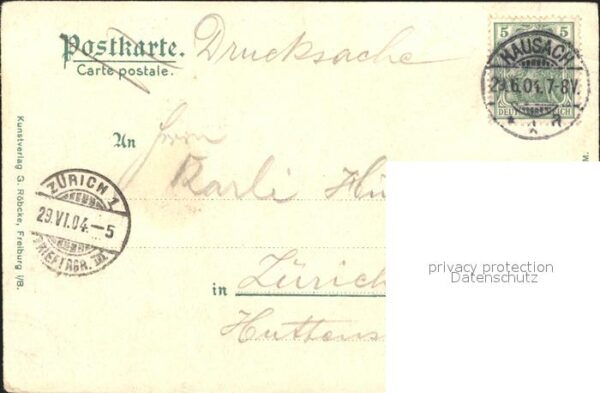 Postkarte. Drucksache
Carte postale.
5 5
HAUSACH
29.6.04.7-8V.
DEUTSCHES REICH
An Herrn
Karli Hü
ZÜRICH 1
29.VI.04.-5
BRIEFTRGR. III
in Zürich
Huttens
Kunstverlag G. Röbcke, Freiburg i/B.
M.
privacy protection
Datenschutz